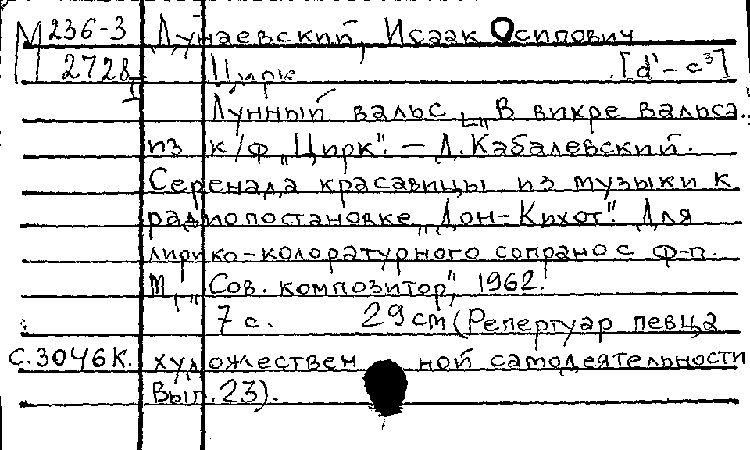 М 236-3 Дунаевский, Исаак Осипович
2728 Цирк [d¹ - c³]
I
Лунный вальс „В вихре вальса..
из к/ф „Цирк". — Д. Кабалевский.
Серенада красавицы из музыки к
радиопостановке „Дон-Кихот". Для
лирико-колоратурного сопрано с ф-п.
М., „Сов. композитор", 1962.
7 с. 29 см (Репертуар певца
С. 3046К. художествен ной самодеятельности
Вып. 23).